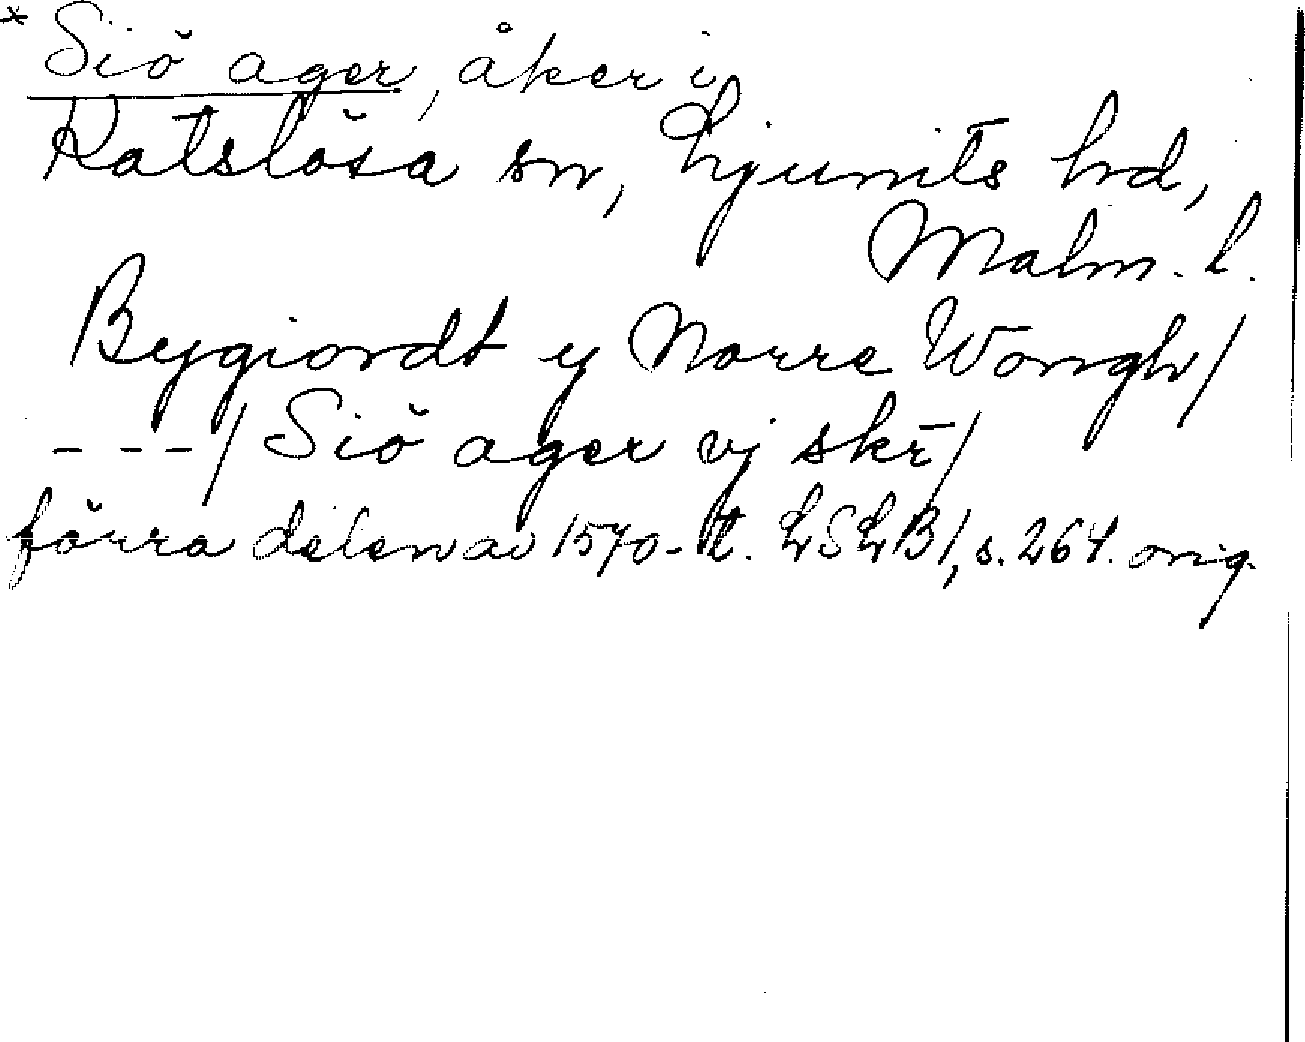 * Siö ager, åker i
Katslösa sn, Ljunits hd,
Malm. l.
Bygiordt y Norre Wongh/
---/ Siö ager vj skr/
förra delen av 1570-t. LSLB1, s. 264. orig.